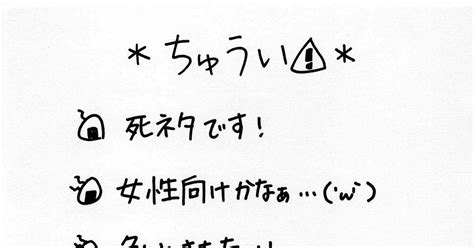 *ちゅうい⚠*
死ネタです!
女性向けかなぁ…(´ω`)